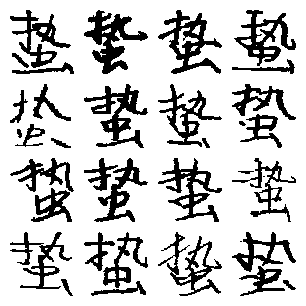 蛰蛰蛰蛰
蛰蛰蛰蛰
蛰蛰蛰蛰
蛰蛰蛰蛰